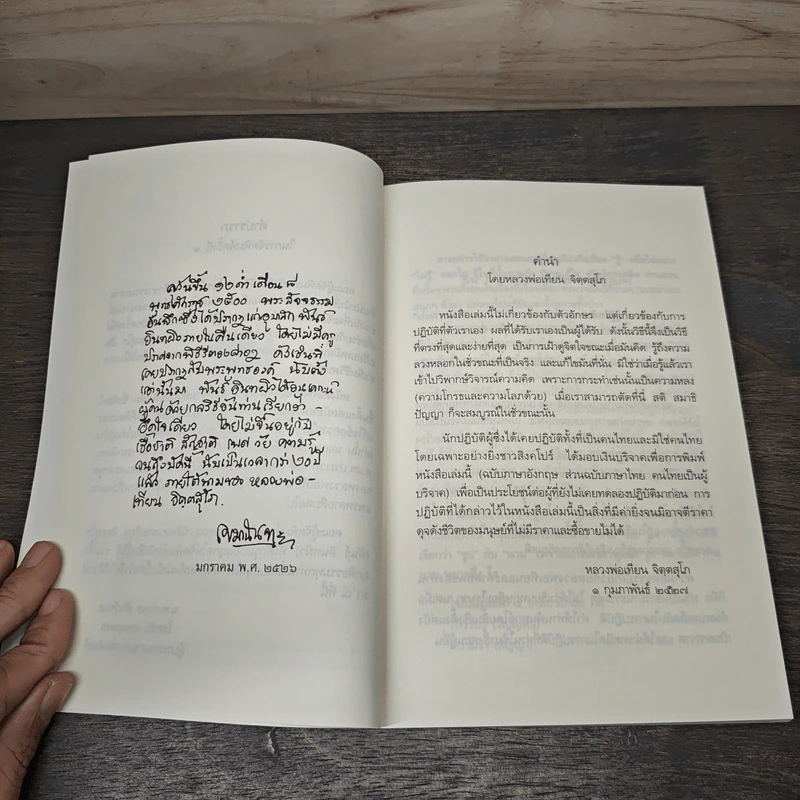 ครั้นขึ้น ๑๒ ค่ำ เดือน ๘
พุทธศักราช ๒๕๐๐ พระสัจจธรรม
อันลึกซึ้งได้ปรากฏแก่อุบาสก พันธ์
อินทผิว ภายในคืนเดียว โดยไม่มีครู
นับตั้ง
แต่นั้นมา พันธ์ อินทผิว
ผู้คนด้วยกลวิธีอันท่านเรียกว่า -
โดยไม่ขึ้นอยู่กับ
เชื้อชาติ ศาสนา เพศ วัย
จนถึงบัดนี้ นับเป็นเวลากว่า ๒๐ ปี
แล้ว ภายใต้นามของ หลวงพ่อ -
เทียน จิตฺตสุโภ.
มกราคม พ.ศ. ๒๕๒๖
คำนำ
โดยหลวงพ่อเทียน จิตฺตสุโภ
หนังสือเล่มนี้ไม่เกี่ยวข้องกับตัวอักษร แต่เกี่ยวข้องกับการ
ปฏิบัติที่ตัวเราเอง ผลที่ได้รับเราเองเป็นผู้ได้รับ ดังนั้นวิธีนี้จึงเป็นวิธี
ที่ตรงที่สุดและง่ายที่สุด เป็นการเฝ้าดูจิตใจขณะเมื่อมันคิด รู้ถึงความ
ลวงหลอกในชั่วขณะที่เป็นจริง และแก้ไขมันที่นั่น มิใช่ว่าเมื่อรู้แล้วเรา
เข้าไปวิพากษ์วิจารณ์ความคิด เพราะการกระทำเช่นนั้นเป็นความหลง
(ความโกรธและความโลภด้วย) เมื่อเราสามารถตัดที่นี่ สติ สมาธิ
ปัญญา ก็จะสมบูรณ์ในชั่วขณะนั้น
นักปฏิบัติผู้ซึ่งได้เคยปฏิบัติทั้งที่เป็นคนไทยและมิใช่คนไทย
โดยเฉพาะอย่างยิ่งชาวสิงคโปร์ ได้มอบเงินบริจาคเพื่อการพิมพ์
หนังสือเล่มนี้ (ฉบับภาษาอังกฤษ ส่วนฉบับภาษาไทย คนไทยเป็นผู้
บริจาค) เพื่อเป็นประโยชน์ต่อผู้ที่ยังไม่เคยทดลองปฏิบัติมาก่อน การ
ปฏิบัติที่ได้กล่าวไว้ในหนังสือเล่มนี้เป็นสิ่งที่มีค่ายิ่งจนมิอาจตีราคา
ดุจดังชีวิตของมนุษย์ที่ไม่มีราคาและซื้อขายไม่ได้
หลวงพ่อเทียน จิตฺตสุโภ
๑ กุมภาพันธ์ ๒๕๒๗